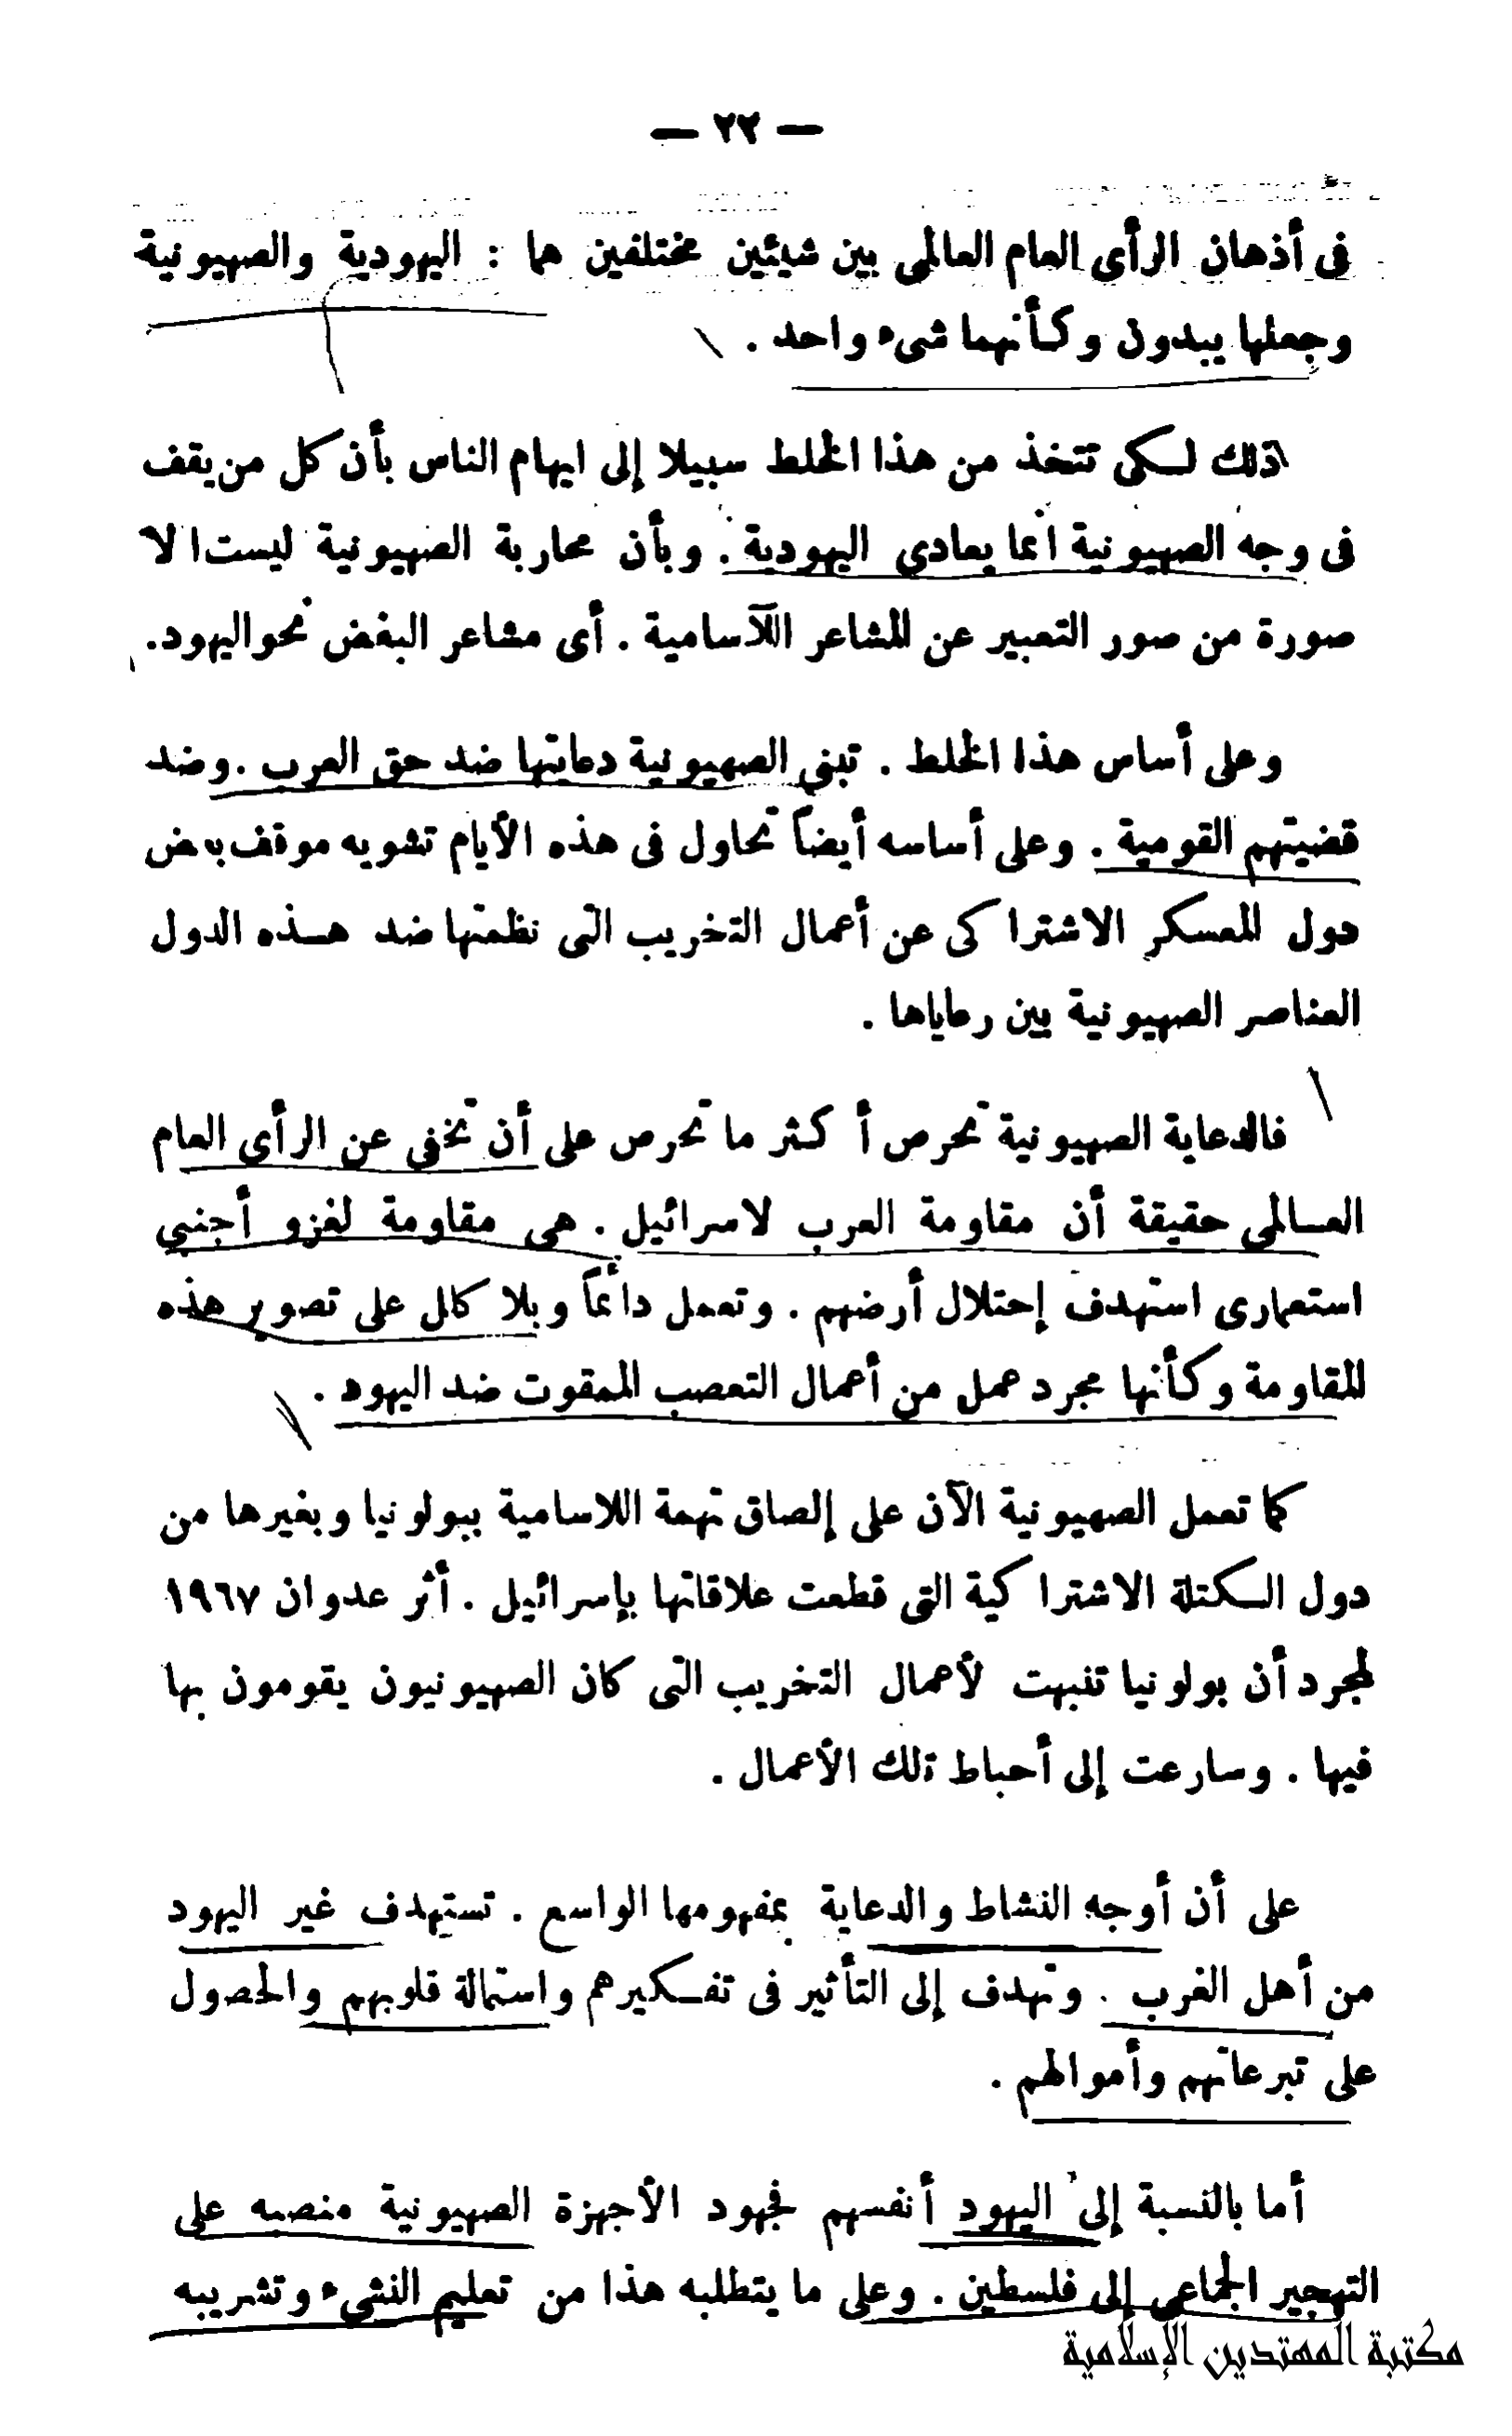 — ٢٢ —
فى أذهان الرأى العام العالمى بين شيئين مختلفين هما : اليهودية والصهيونية
وجعلها يبدون وكأنهما شىء واحد .
ذلك لكى تتخذ من هذا الخلط سبيلا إلى ايهام الناس بأن كل من يقف
فى وجه الصهيونية انما يعادى اليهودية . وبأن محاربة الصهيونية ليست الا
صورة من صور التعبير عن المشاعر اللآسامية . أى مشاعر البغض نحو اليهود.
وعلى أساس هذا الخلط . تبنى الصهيونية دعايتها ضد حق العرب . وضد
قضيتهم القومية . وعلى أساسه أيضاً تحاول فى هذه الأيام تشويه موقف بعض
دول المعسكر الاشتراكى عن أعمال التخريب التى نظمتها ضد هذه الدول
العناصر الصهيونية بين رعاياها .
فالدعاية الصهيونية تحرص أكثر ما تحرص على أن تخفى عن الرأى العام
العالمى حقيقة أن مقاومة العرب لاسرائيل . هى مقاومة لغزو أجنبى
استعمارى استهدف إحتلال أرضهم . وتعمل دائماً وبلا كلل على تصوير هذه
المقاومة وكأنها مجرد عمل من أعمال التعصب الممقوت ضد اليهود .
كما تعمل الصهيونية الآن على إلصاق تهمة اللاسامية ببولونيا وبغيرها من
دول الكتلة الاشتراكية التى قطعت علاقاتها بإسرائيل . أثر عدوان ١٩٦٧
لمجرد أن بولونيا تنبهت لأعمال التخريب التى كان الصهيونيون يقومون بها
فيها . وسارعت إلى أحباط تلك الأعمال .
على أن أوجه النشاط والدعاية بمفهومها الواسع . تستهدف غير اليهود
من أهل الغرب . وتهدف إلى التأثير فى تفكيرهم واستمالة قلوبهم والحصول
على تبرعاتهم وأموالهم .
أما بالنسبة إلى اليهود أنفسهم فجهود الأجهزة الصهيونية منصبه على
التهجير الجماعى إلى فلسطين . وعلى ما يتطلبه هذا من تعليم النشىء وتشريبه
مكتبة المهتدين الإسلامية